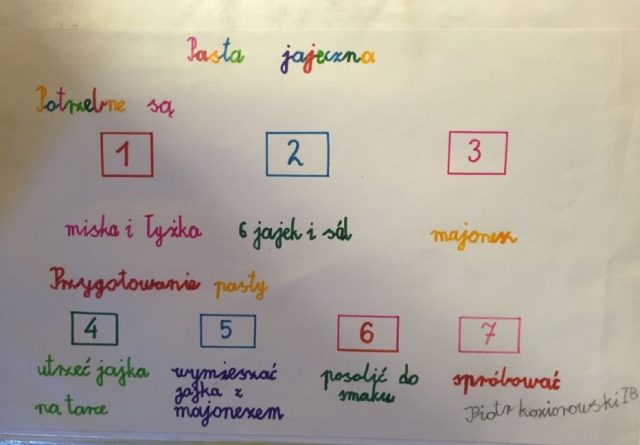 Pasta jajeczna
Potrzebne są
1 2 3
miska i łyżka 6 jajek i sól majonez
Przygotowanie pasty
4 5 6 7
utrzeć jajka
na tarce
wymieszać
jajka z
majonezem
posolić do
smaku
spróbować
Piotr Koziorowski IB